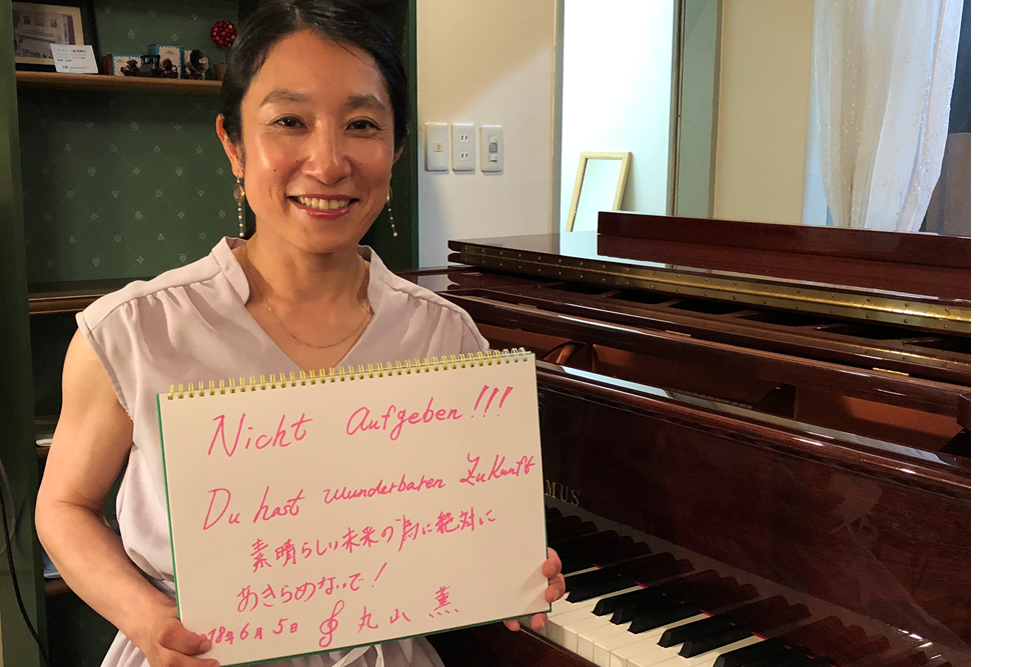 Nicht aufgeben!!!
Du hast wunderbaren Zukunft
素晴らしい未来の為に絶対に
あきらめないで!
2018年6月5日 丸山 薫
MUS